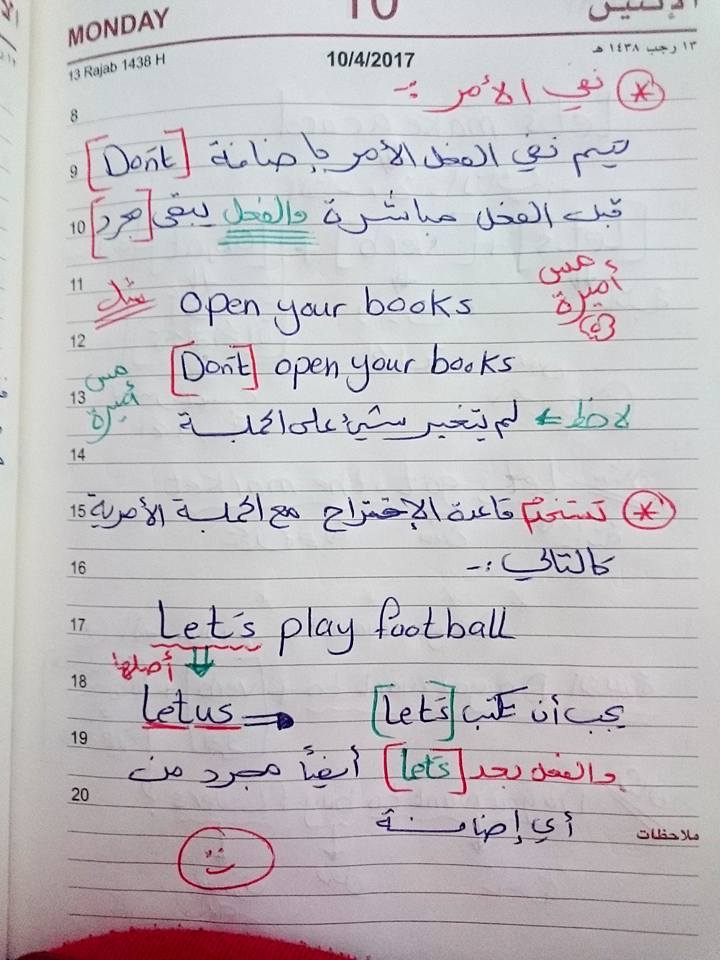 MONDAY
10
الإثنين
13 Rajab 1438 H
10/4/2017
١٣ رجب ١٤٣٨ هـ
* نفي الأمر :-
8
9
يتم نفي الفعل الأمر بإضافة [Don't]
10
قبل الفعل مباشرة والفعل يبقى [مجرد]
11
مثل open your books
مس
أميرة
12
[Don't] open your books
13
مس
أميرة
لاحظ ← لم يتغير شيء على الجملة
14
15
* تستخدم قاعدة الإقتراح مع الجملة الأمرية
16
كالتالي :-
17
Let's play football
أصلها ⇓
18
يجب أن نكتب [Let's]
let us ⇒
19
والفعل بعد [let's] أيضاً مجرد من
20
أي إضافة
ملاحظات